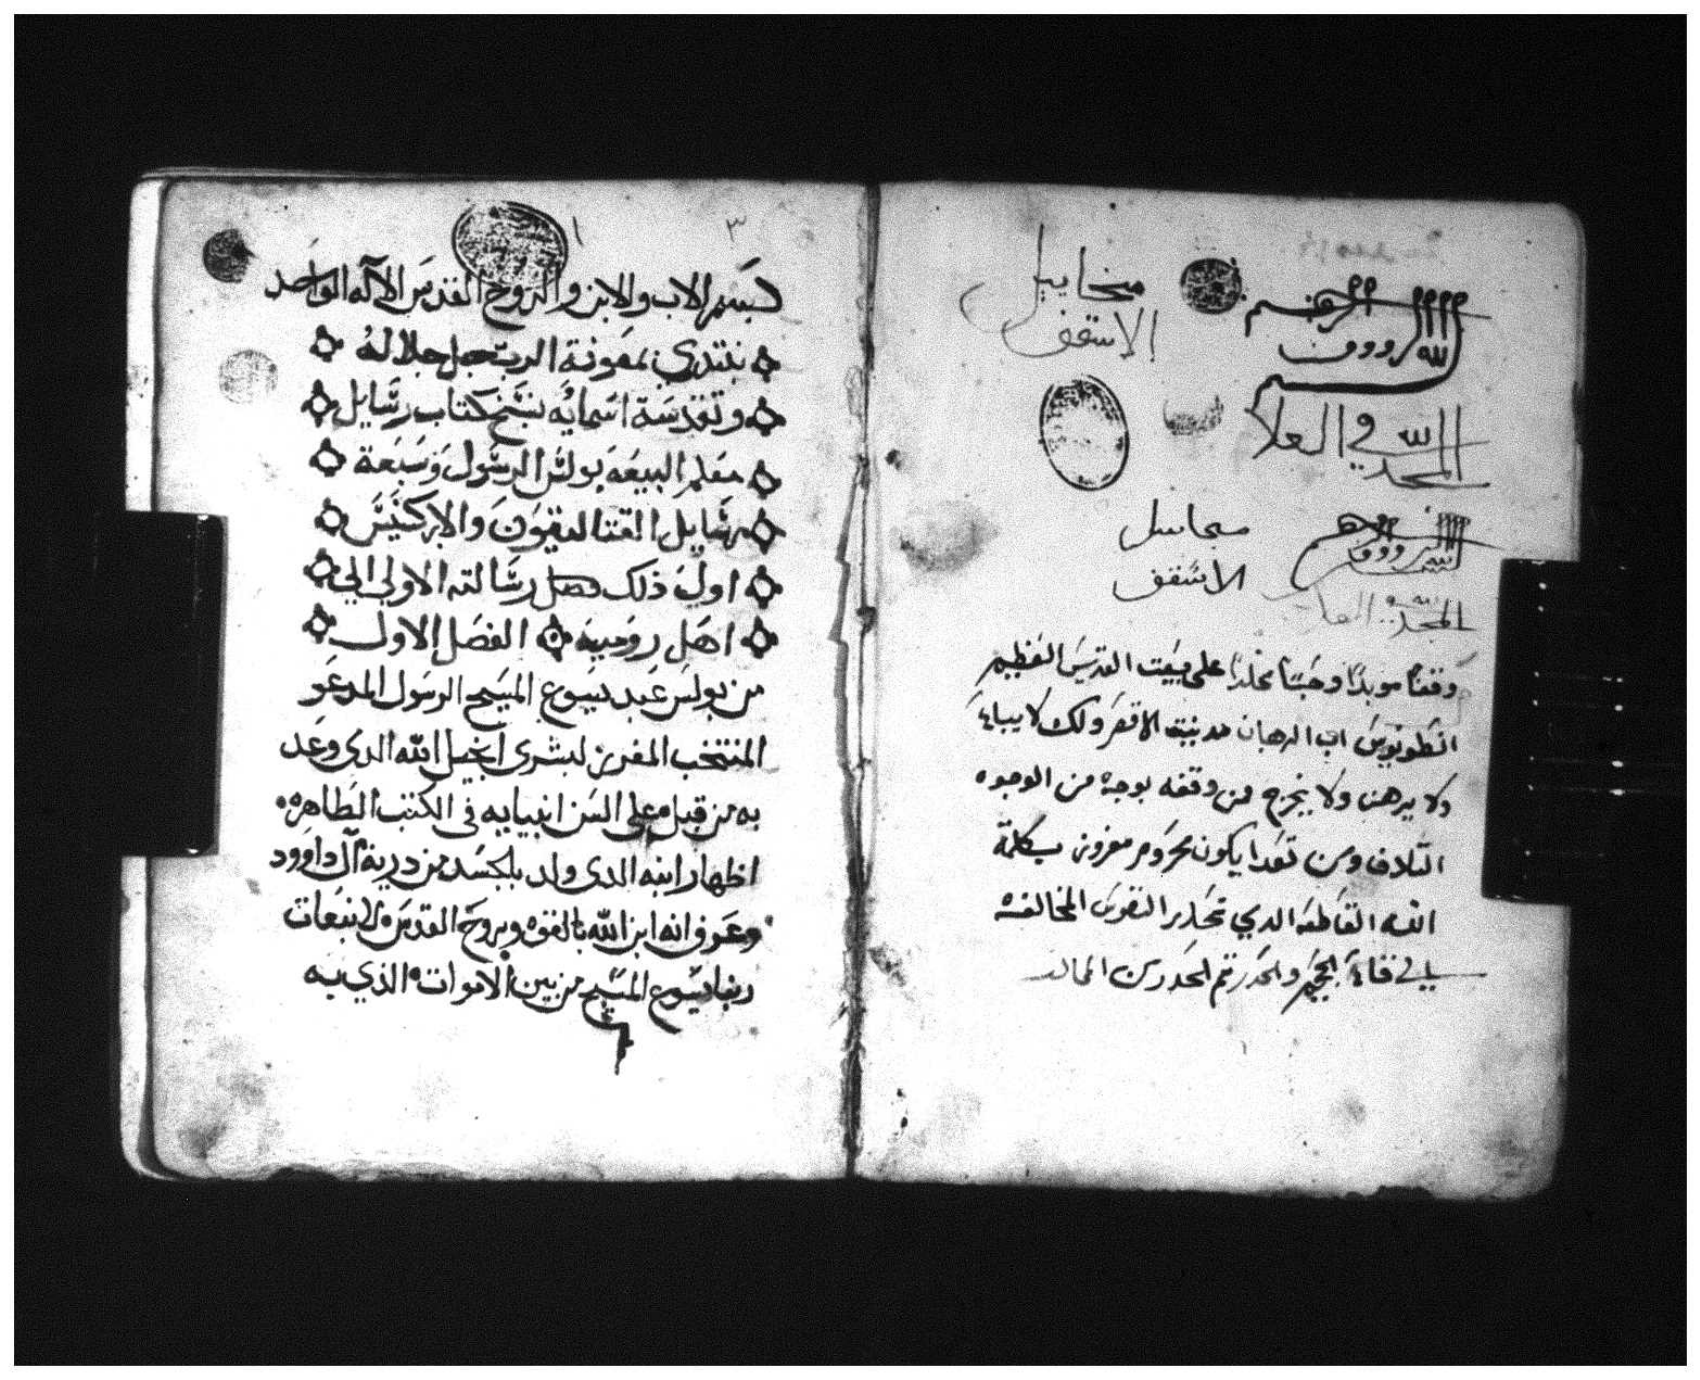 بسم الله الرووف الرحيم
ميخاييل
الاسقف
المجد لله في العلا
بسم الله الرووف الرحيم
ميخاييل
الاسقف
المجد لله
وقفا موبدا وحبسا مخلدا على بيعت القديس العظيم
انطونيوس اب الرهبان مدينة الاقصر ولك لا يباع
ولا يرهن ولا يخرج من وقفه بوجه من الوجوه
التلاف ومن تعدا يكون محروم مفروز بكلمة
الله القاطعه الدي تحدر النفوس المخالفه
الي قاع الجحيم والحدر تم الحدر من
٣
١
بسم الاب والابن والروح القدس الآله الواحد
نبتدي بمعونة الرب جل جلاله
وتقدسة اسمايه بنسخ كتاب رسايل
معلم البيعه بولس الرسول وسبعة
رسايل القتاليقون والابركسيس
اول ذلك رسالته الاولى الي
اهل روميه الفصل الاول
من بولس عبد يسوع المسيح الرسول المدعو
المنتخب المفرز لبشرى انجيل الله الدى وعد
به من قبل على السن انبيايه في الكتب الطاهره
اظهار ابنه الدى ولد بالجسد من درية آل داوود
وعرف انه ابن الله بالقوه وبروح القدس لانبعات
ربنا يسوع المسيح من بين الاموات الذي به